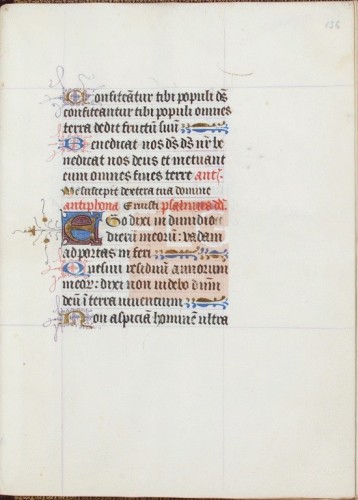 136
Confiteantur tibi populi ds̄
confiteantur tibi populi omnes
terra dedit fructū suū
Benedicat nos ds̄ ds̄ nr̄ be
nedicat nos deus et metuant
eum omnes fines terre ant̄.
Me suscepit dextera tua domine
antiphona Eruisti psalmus dd̄.
Ego dixi in dimidio
dierū meorū: vadam
ad portas inferi
Quesivi residuū annorum
meor̄: dixi non videbo dn̄m
deū ī terra viventium
Non aspiciā hominē ultra